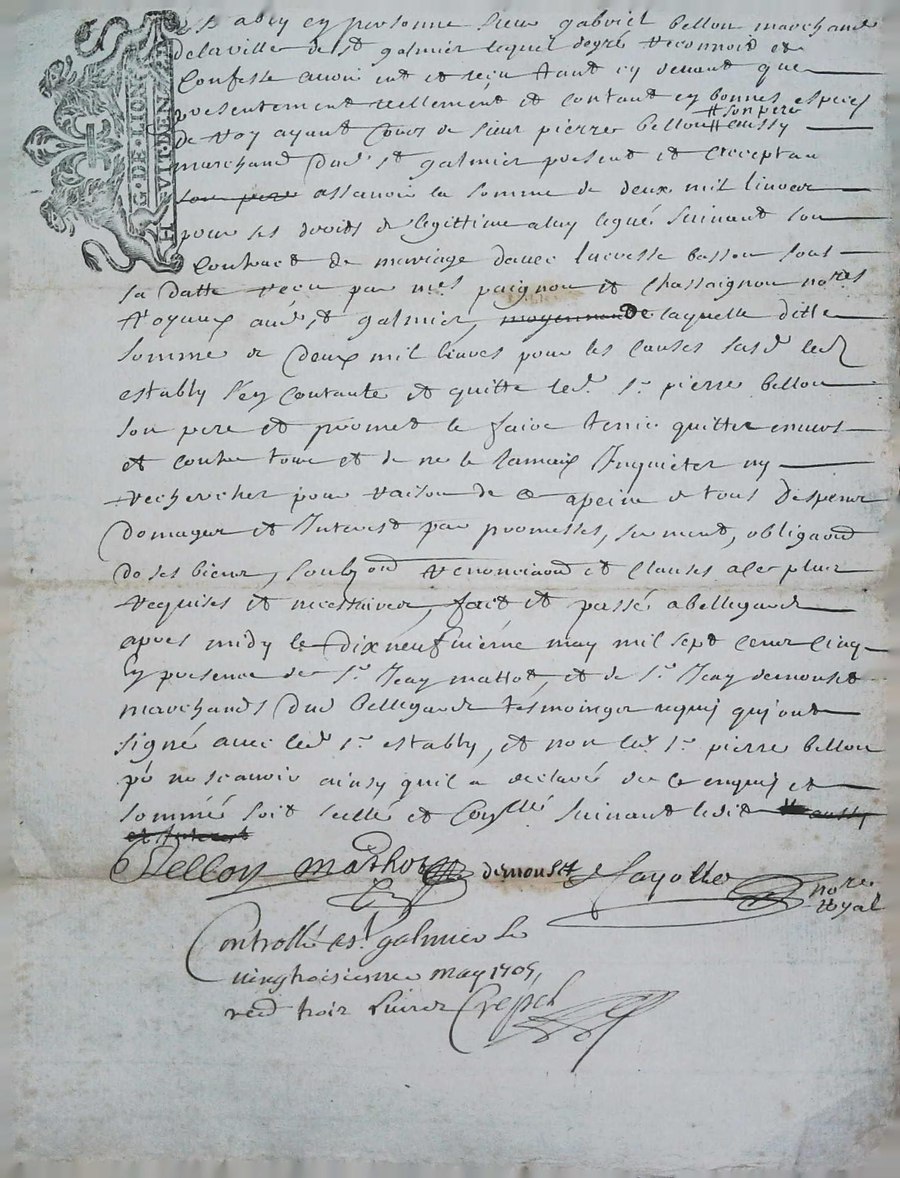 G·DE·LION
HVIT·DEN
Est abely en personne sieur gabriel bellon marchand
de la ville de st galmier lequel degré reconnoit et
Confesse avoir eut et reçu tant cy devant que
presentement reellemént et contant en bonnes especes
de Roy ayant Cours de sieur pierre bellon # aussy
# son pere
marchand dud. st galmier present et acceptan
son pere assavoir la somme de deux mil livvres
pour ses droits de legittime a luy legué suivant son
Contract de mariage d'avec Lucresse basson sous
sa datte reçu par mes paignon et Chassaignon nores
Royaux aud. st galmier, moyennande laquelle ditte
somme de deux mil livres pour les causes susd. led
estably s'en contante et quitte led. sr. pierre bellon
son pere et promet le faire tenir quitter envers
et contre tous et de ne le Jamaix Inquieter ny
rechercher pour raison de ce apeine de tous despens
domages et Interest par promesses, serment, obligaon
de ses biens, soubzon renonciaon et clauses a ces plus
requises et necessaires, fait et passé a bellegarde
apres midy le dixneufviéme may mil sept cens cinq
En presence de sr. Jean mattot, et de sr. Jean demouset
marchands dud bellegarde tesmoinges requis qui ont
signé avec led. sr. estably, et non led. sr. pierre bellon
po ne scavoir ainsy quil a declaré de ce enquis et
sommé soit scellé et Conllé suivant ledit aussy
et Interest
Bellon mathor demouset Cayotte nore
Royal
Controllé a st. galmier le
vingtroisiesme may 1705,
reçu trois livres Crespel